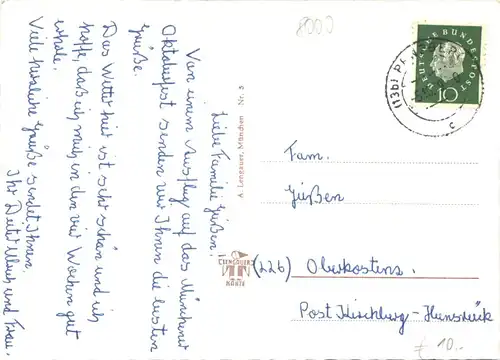 8000
Liebe Familie Güßen!
Von einem Ausflug auf das Münchener
Oktoberfest senden wir Ihnen die besten
Grüße.
Das Wetter hier ist sehr schön und ich
hoffe, daß ich mich in den vier Wochen gut
erhole.
Viele herzliche Grüße sendet Ihnen
Ihr Dieter Ulrich und Frau.
A. Lengauer, München Nr. 3
LENGAUER
KARTE
DEUTSCHE BUNDESPOST
10
(13b)
c
Fam.
Güßen
(22b) Oberkostenz.
Post Kirchberg-Hunsrück
10.-